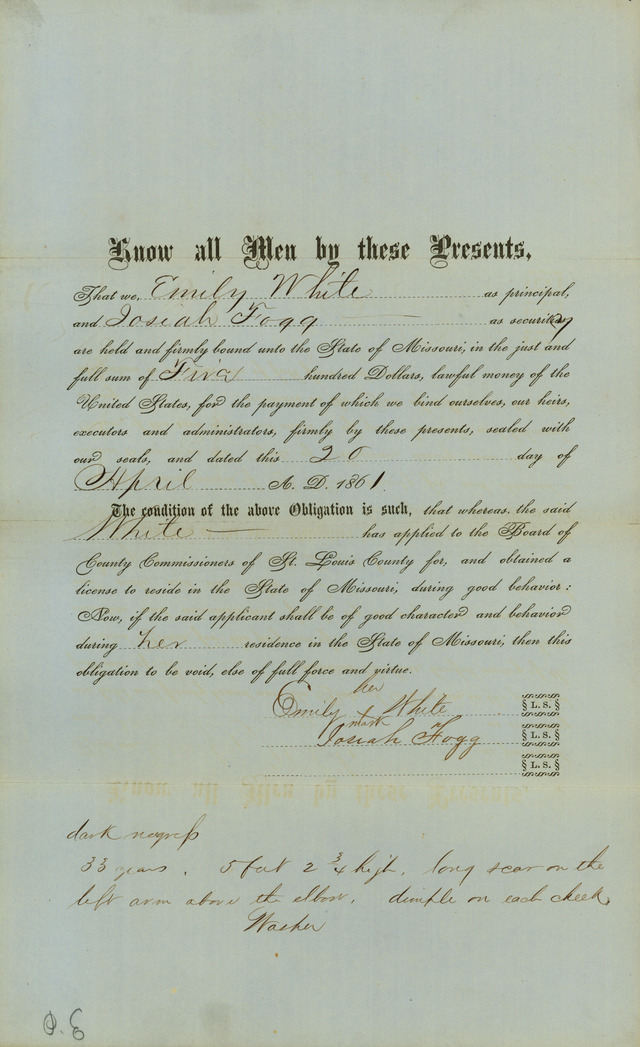 Know all Men by these Presents,
That we, Emily White as principal,
and Josiah Fogg as security
are held and firmly bound unto the State of Missouri, in the just and
full sum of Five hundred Dollars, lawful money of the
United States, for the payment of which we bind ourselves, our heirs,
executors and administrators, firmly by these presents, sealed with
our seals, and dated this 20 day of
April A. D. 1861.
The condition of the above Obligation is such, that whereas, the said
White has applied to the Board of
County Commissioners of St. Louis County for, and obtained a
license to reside in the State of Missouri, during good behavior:
Now, if the said applicant shall be of good character and behavior
during her residence in the State of Missouri, then this
obligation to be void, else of full force and virtue.
her
Emily x White L. S.
mark
Josiah Fogg L. S.
L. S.
dark negress
33 years. 5 feet 2 3/4 high, long scar on the
left arm above the elbow, dimple on each cheek,
Washer